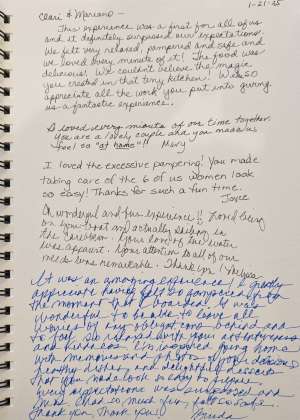 1-21-25
Clari & Mariano -
This experience was a first for all of us
and it definitely surpassed our expectations.
We felt very relaxed, pampered and safe and
we loved every minute of it! The food was
delicious! We couldn't believe the magic
you created in that tiny kitchen! We SO
appreciate all the work you put into giving
us a fantastic experience.
I loved every minute of our time together.
You are a lovely couple and you made us
feel so "at home"!!
I loved the excessive pampering! You made
taking care of the 6 of us women look
so easy! Thanks for such a fun time.
Joyce
Oh wonderful and fun experience!! Loved being
on your boat and actually sailing in
the Caribbean. Your love of the water
was apparent. Your attention to all of our
needs was remarkable. Thank you!
It was an amazing experience! I greatly
appreciate having felt so
the moment that I boarded. It was
wonderful to be able to leave all
worries by any obligations behind and
to feel so
and kindness. I'm
with memories and photos of your delicious
healthy dishes and delightful desserts
that you made look so easy to prepare.
Every expectation was surpassed and
I was
Thank you, thank you!